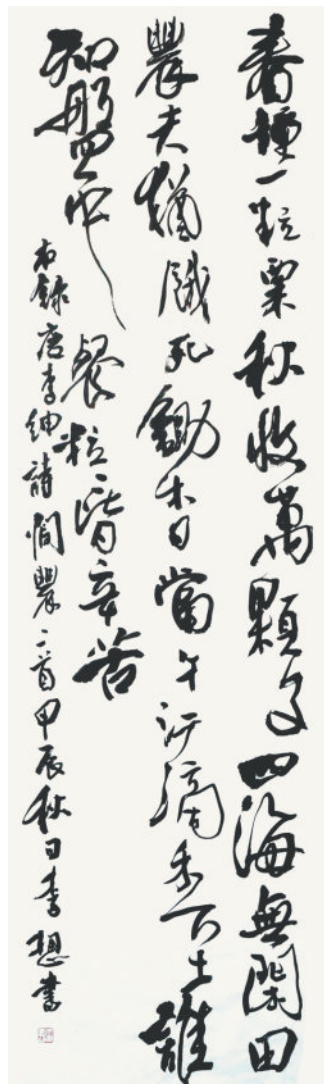 春種一粒粟秋收萬顆子四海無閑田
農夫猶餓死鋤禾日當午汗滴禾下土誰
知盤中餐粒粒皆辛苦
右錄唐李紳詩憫農二首甲辰秋日李想書